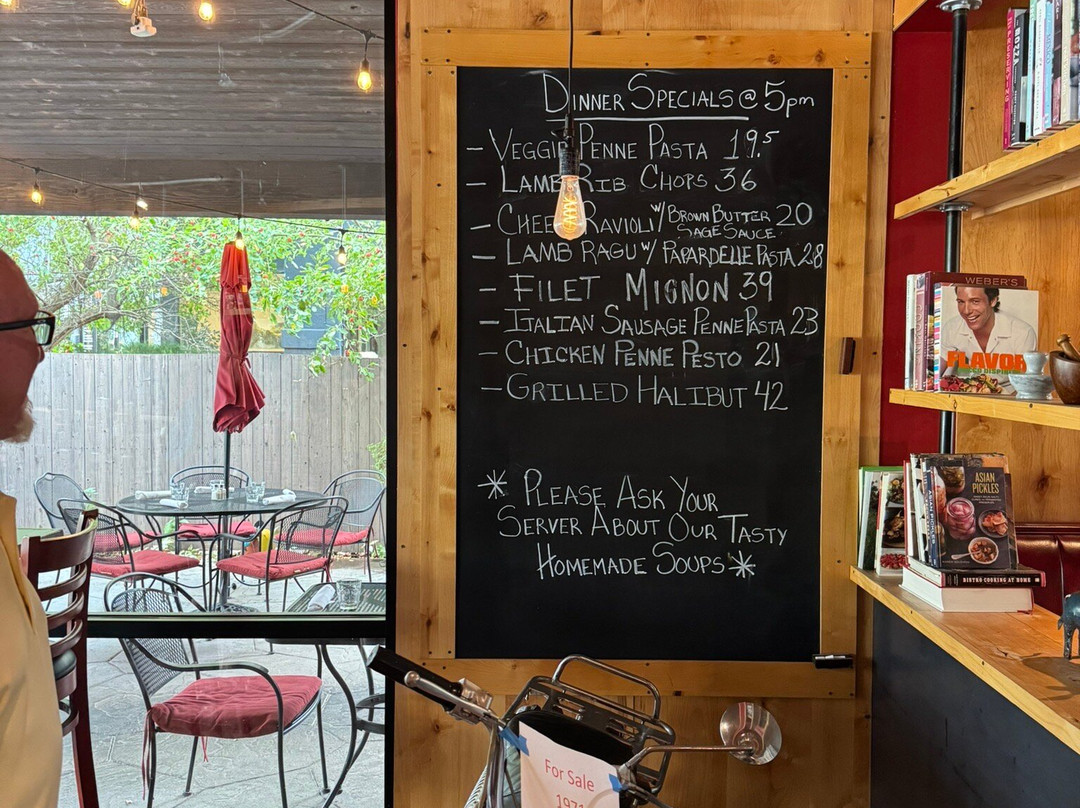 Dinner Specials @ 5pm
- Veggie Penne Pasta 19.5
- Lamb Rib Chops 36
- Cheese Ravioli w/ Brown Butter Sage Sauce 20
- Lamb Ragu w/ Papardelle Pasta 28
- Filet Mignon 39
- Italian Sausage Penne Pasta 23
- Chicken Penne Pesto 21
- Grilled Halibut 42
* Please Ask Your
Server About Our Tasty
Homemade Soups *
WEBER'S
FLAVOR
ASIAN
PICKLES
BISTRO COOKING AT HOME
For Sale